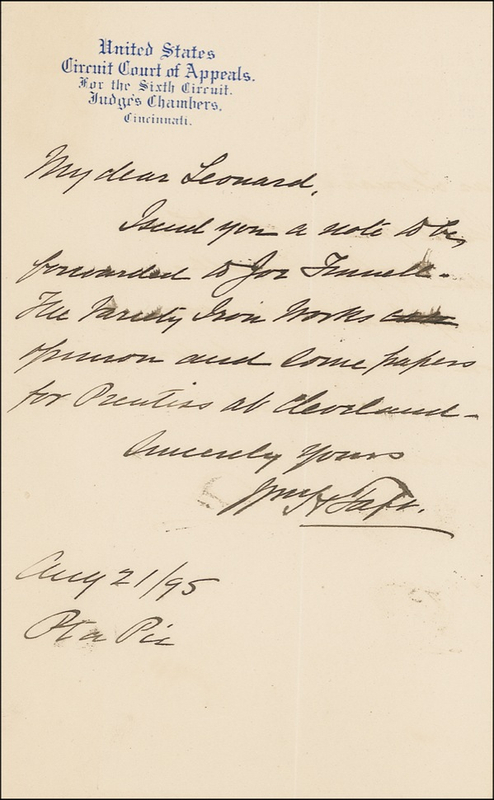 United States
Circuit Court of Appeals.
For the Sixth Circuit.
Judge's Chambers.
Cincinnati.
My dear Leonard,
I send you a note to be
forwarded to Joe Finnell -
The Variety Iron Works
opinion and some papers
for Prentiss at Cleveland -
Sincerely Yours
Wm H Taft.
Aug 21/95
Pt a Pic